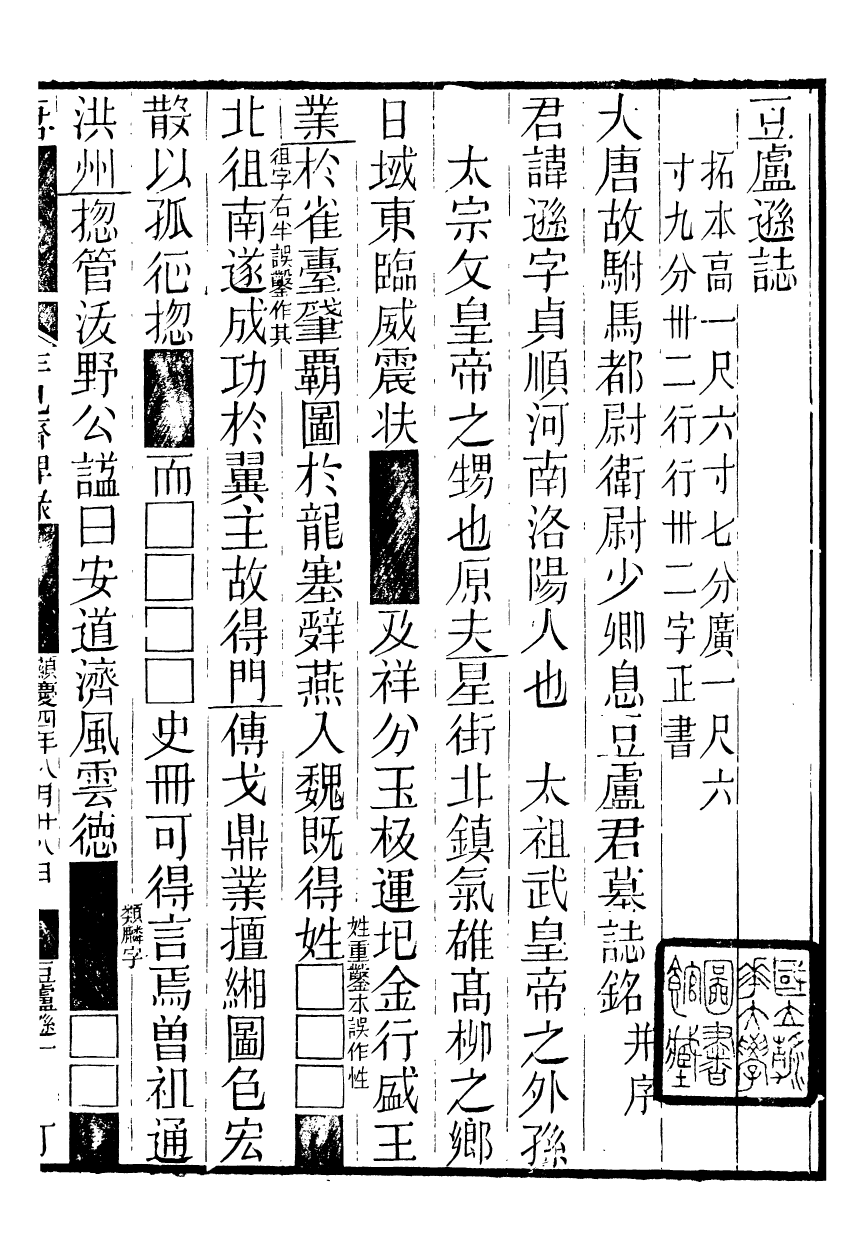 豆盧遜誌
拓本高一尺六寸七分廣一尺六
寸九分卅二行行卅二字正書
大唐故駙馬都尉衛尉少卿息豆盧君墓誌銘并序
君諱遜字貞順河南洛陽人也　太祖武皇帝之外孫
太宗文皇帝之甥也原夫星街北鎮氣雄髙栁之鄉
日域東臨威震状　及祥分玉板運圯金行盛王
業於雀臺肈覇圖於龍塞辤燕入魏既得姓
姓重鑿本誤作性
□□□
徂字右半誤鑿作其
北徂南遂成功於翼主故得門傳戈鼎業擅緗圖色宏
散以孤征揔　而□□□□史冊可得言焉曽祖通
類麟字
洪州揔管沃野公謚曰安道濟風雲徳　□□
顯慶四年八月廿八日
豆盧遜一
國立清華大學圖書館藏